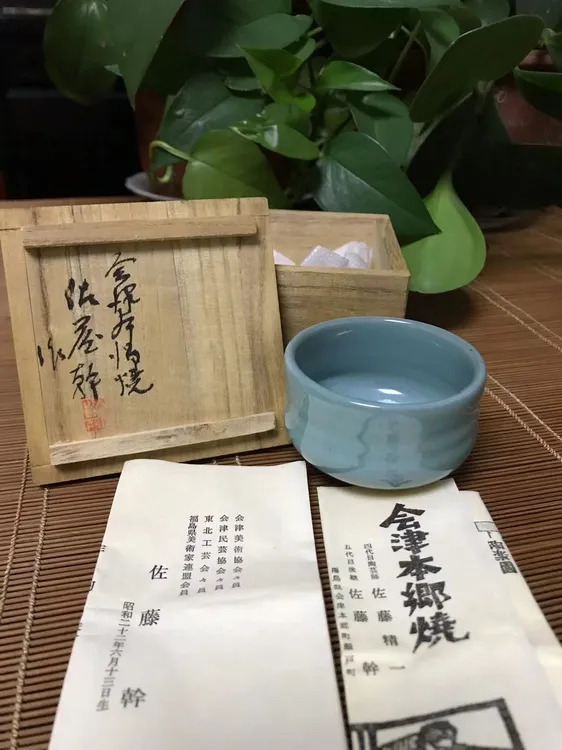 会津本郷焼
佐藤幹
作
会津美術協会々員
会津民芸協会々員
東北工芸会々員
福島県美術家連盟会員
佐藤 幹
昭和二十二年六月十三日生
会津本郷燒
四代目陶芸師 佐藤精一
五代目後継 佐藤幹
福島県会津本郷町瀬戸町